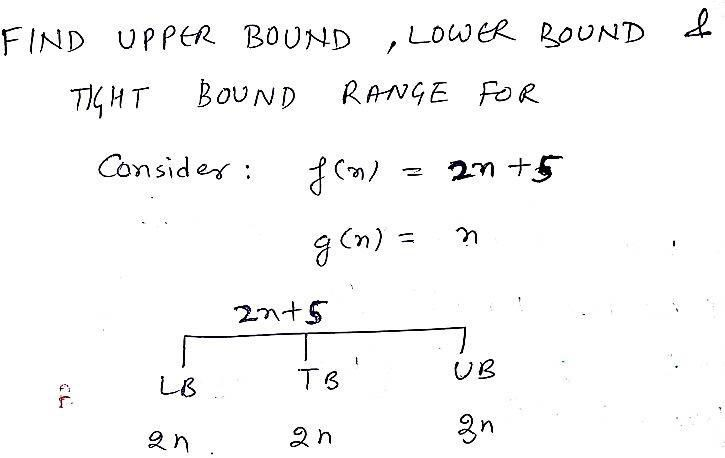 FIND UPPER BOUND , LOWER BOUND &
TIGHT BOUND RANGE FOR
Consider : f(n) = 2n +5
g(n) = n
2n+5
LB TB UB
2n 2n 3n